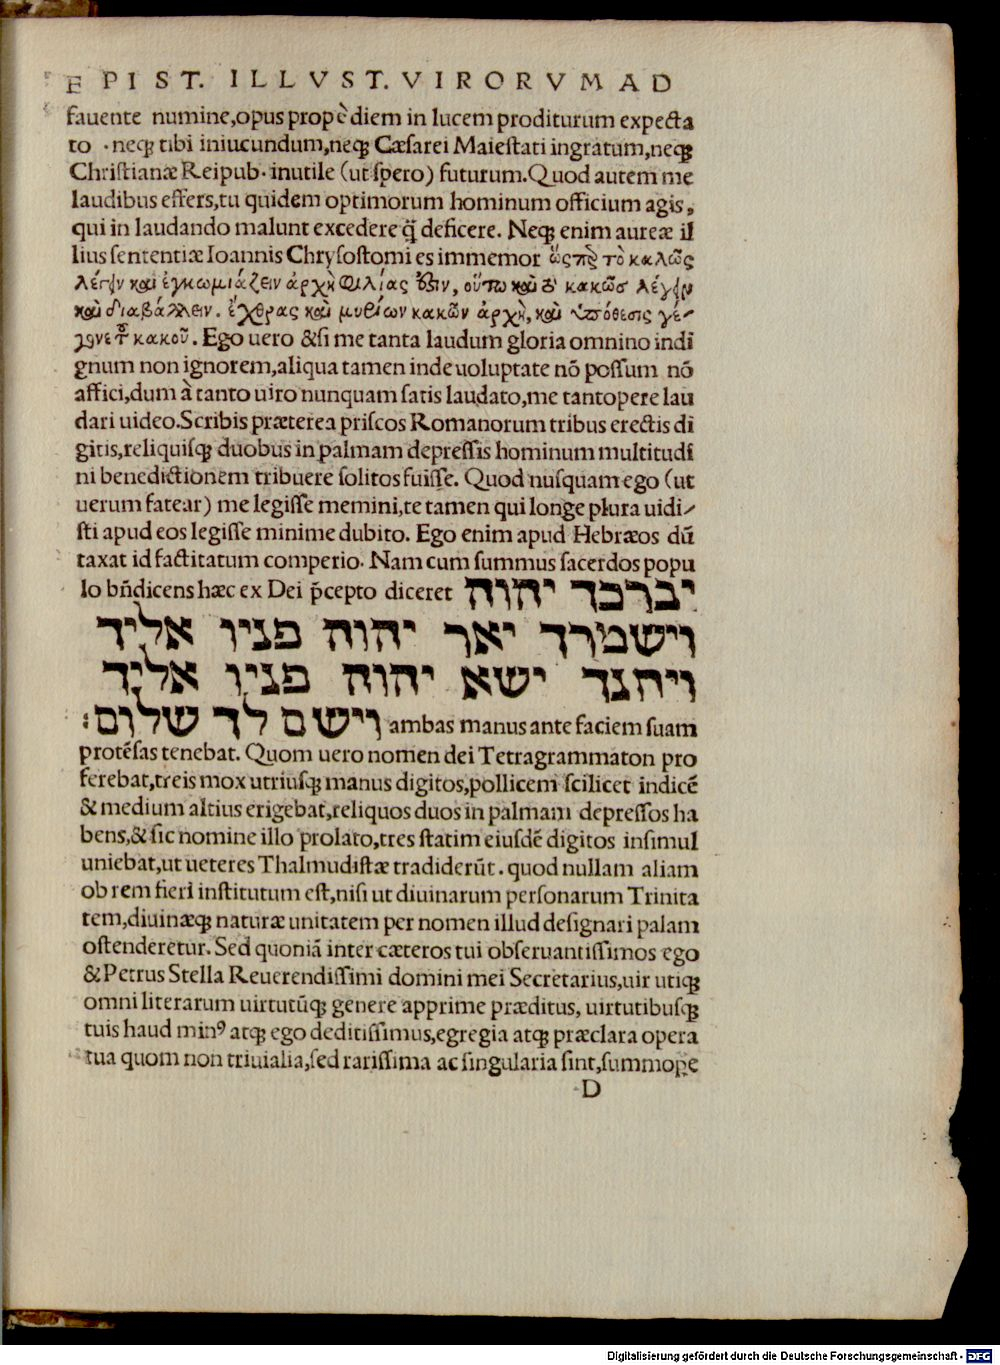 EPIST. ILLVST. VIRORVM AD
fauente numine,opus propẽdiem in lucem proditurum expecta
to ·neqꝫ tibi iniucundum,neqꝫ Cæsarei Maiestati ingratum,neqꝫ
Christianæ Reipub· inutile (ut spero) futurum.Quod autem me
laudibus effers,tu quidem optimorum hominum officium agis,
qui in laudando malunt excedere q̃ deficere. Neqꝫ enim aureæ il
lius sententiæ Ioannis Chrysostomi es immemor ὥςπερ τὸ καλῶς
λέγειν καὶ ἐγκωμιάζειν ἀρχὴ φιλίας ὅστιν, οὕτω καὶ τὸ κακῶσ λέγειν
καὶ διαβάλλειν. ἔχθρας καὶ μυρίων κακῶν ἀρχὴ, καὶ ὑπόθεσις γέ-
γονε τοῦ κακοῦ. Ego uero &si me tanta laudum gloria omnino indi
gnum non ignorem,aliqua tamen inde uoluptate nõ possum nõ
affici,dum à tanto uiro nunquam satis laudato,me tantopere lau
dari uideo.Scribis præterea priscos Romanorum tribus erectis di
gitis,reliquisqꝫ duobus in palmam depressis hominum multitudi
ni benedictionem tribuere solitos fuisse. Quod nusquam ego (ut
uerum fatear) me legisse memini,te tamen qui longe plura uidi-
sti apud eos legisse minime dubito. Ego enim apud Hebræos dũ
taxat id factitatum comperio· Nam cum summus sacerdos popu
lo bñdicens hæc ex Dei p̃cepto diceret יברכך יהוה
וישמרך יאר יהוה פניו אליך
ויחנך ישא יהוה פניו אליך
וישם לך שלום: ambas manus ante faciem suam
protẽsas tenebat. Quom uero nomen dei Tetragrammaton pro
ferebat,treis mox utriusqꝫ manus digitos,pollicem scilicet indicẽ
& medium altius erigebat,reliquos duos in palmam depressos ha
bens,& sic nomine illo prolato,tres statim eiusdẽ digitos insimul
uniebat,ut ueteres Thalmudistæ tradiderũt. quod nullam aliam
ob rem fieri institutum est,nisi ut diuinarum personarum Trinita
tem,diuinæqꝫ naturæ unitatem per nomen illud designari palam
ostenderetur. Sed quoniã inter cæteros tui obseruantissimos ego
& Petrus Stella Reuerendissimi domini mei Secretarius,uir utiqꝫ
omni literarum uirtutũqꝫ genere apprime præditus, uirtutibusqꝫ
tuis haud minꝰ atqꝫ ego deditissimus,egregia atqꝫ præclara opera
tua quom non triuialia,sed rarissima ac singularia sint,summope
D
Digitalisierung gefördert durch die Deutsche Forschungsgemeinschaft - DFG